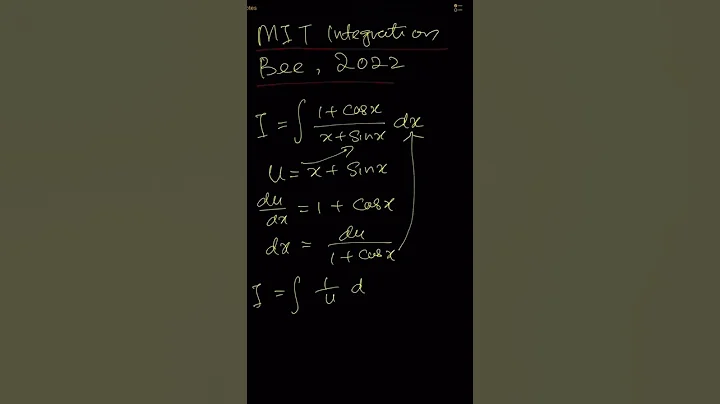 otes
MIT Integration
Bee, 2022
I = ∫ (1+cosx)/(x+sinx) dx
u = x + sinx
du/dx = 1 + cosx
dx = du/(1+cosx)
I = ∫ 1/u d